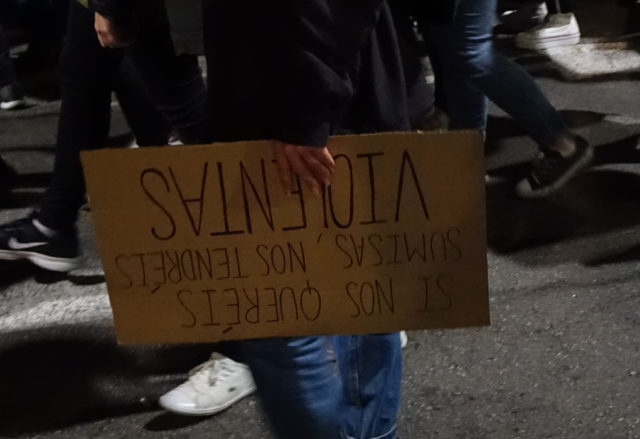 SI NOS QUERÉIS
SUMISAS, NOS TENDRÉIS
VIOLENTAS